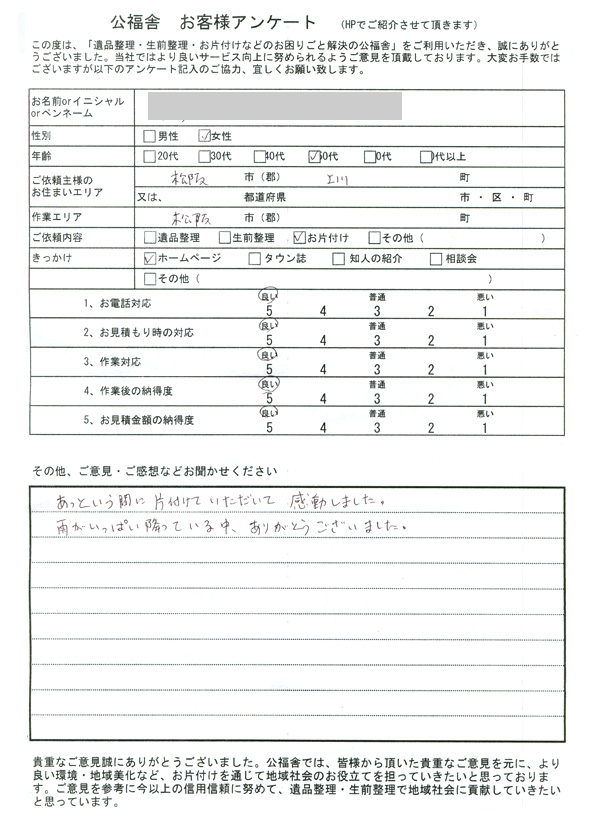 公福舎 お客様アンケート (HPでご紹介させて頂きます)
この度は、「遺品整理・生前整理・お片付けなどのお困りごと解決の公福舎」をご利用いただき、誠にありがと
うございました。当社ではより良いサービス向上に努められるようご意見を頂戴しております。大変お手数では
ございますが以下のアンケート記入のご協力、宜しくお願い致します。
お名前orイニシャル
orペンネーム
性別 男性 女性
年齢 20代 30代 40代 50代 60代 70代以上
ご依頼主様の
お住まいエリア
松阪 市(郡) 上川 町
又は、 都道府県 市・区・町
作業エリア 松阪 市(郡) 町
ご依頼内容 遺品整理 生前整理 お片付け その他( )
きっかけ ホームページ タウン誌 知人の紹介 相談会
その他( )
良い 普通 悪い
1、お電話対応 5 4 3 2 1
良い 普通 悪い
2、お見積もり時の対応 5 4 3 2 1
良い 普通 悪い
3、作業対応 5 4 3 2 1
良い 普通 悪い
4、作業後の納得度 5 4 3 2 1
良い 普通 悪い
5、お見積金額の納得度 5 4 3 2 1
その他、ご意見・ご感想などお聞かせください
あっという間に片付けていただいて 感動しました。
雨がいっぱい降っている中、ありがとうございました。
貴重なご意見誠にありがとうございました。公福舎では、皆様から頂いた貴重なご意見を元に、より
良い環境・地域美化など、お片付けを通じて地域社会のお役立てを担っていきたいと思っておりま
す。ご意見を参考に今以上の信用信頼に努めて、遺品整理・生前整理で地域社会に貢献していきたい
と思っています。